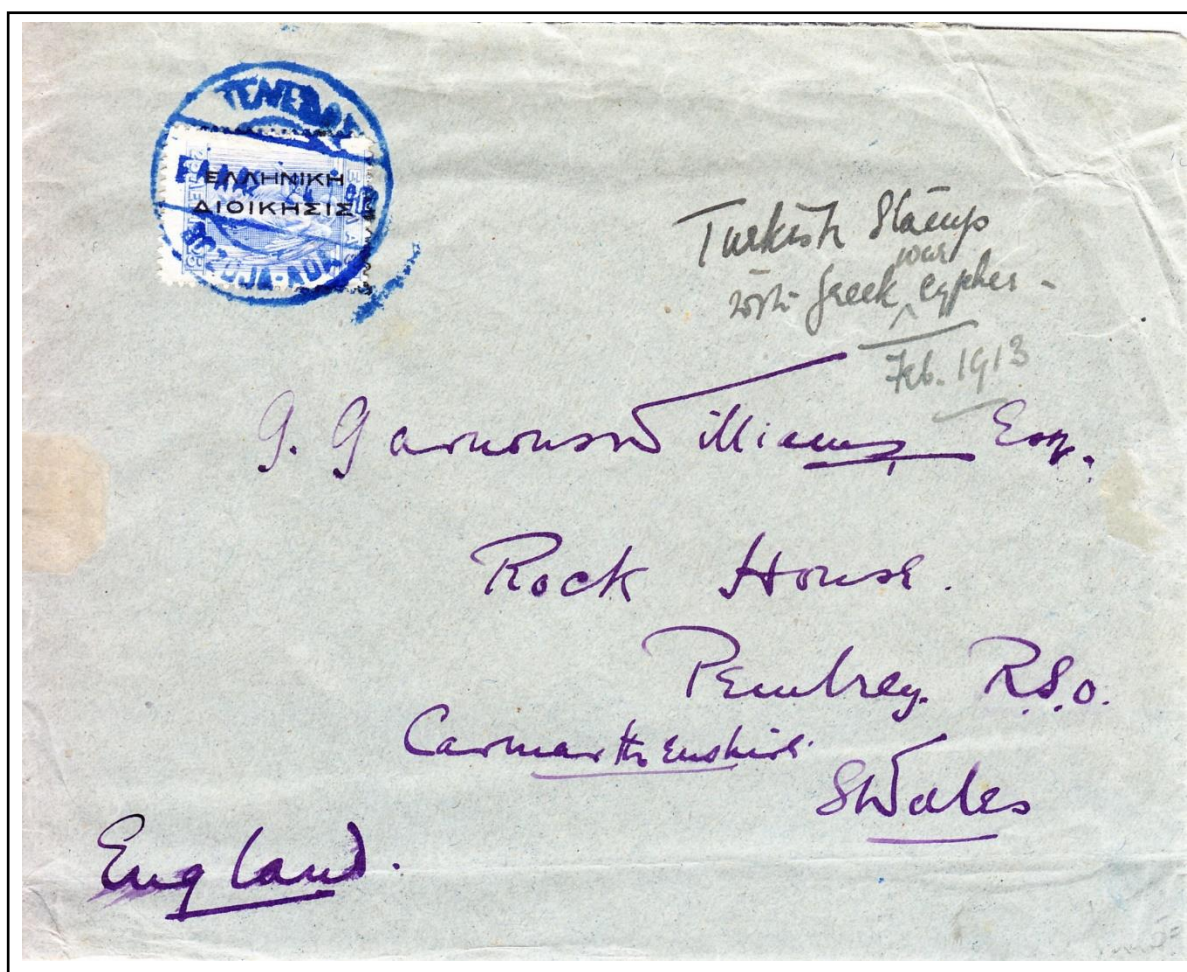 TENEDOS
ΕΛΛΗΝΙΚΗ
ΔΙΟΙΚΗΣΙΣ
BOZDJA-ADA
Turkish Stamp
with Greek war cypher -
Feb. 1913
G. Garnons Williams Esq.
Rock House.
Pembrey. R.S.O.
Carmarthenshire
S Wales
England.